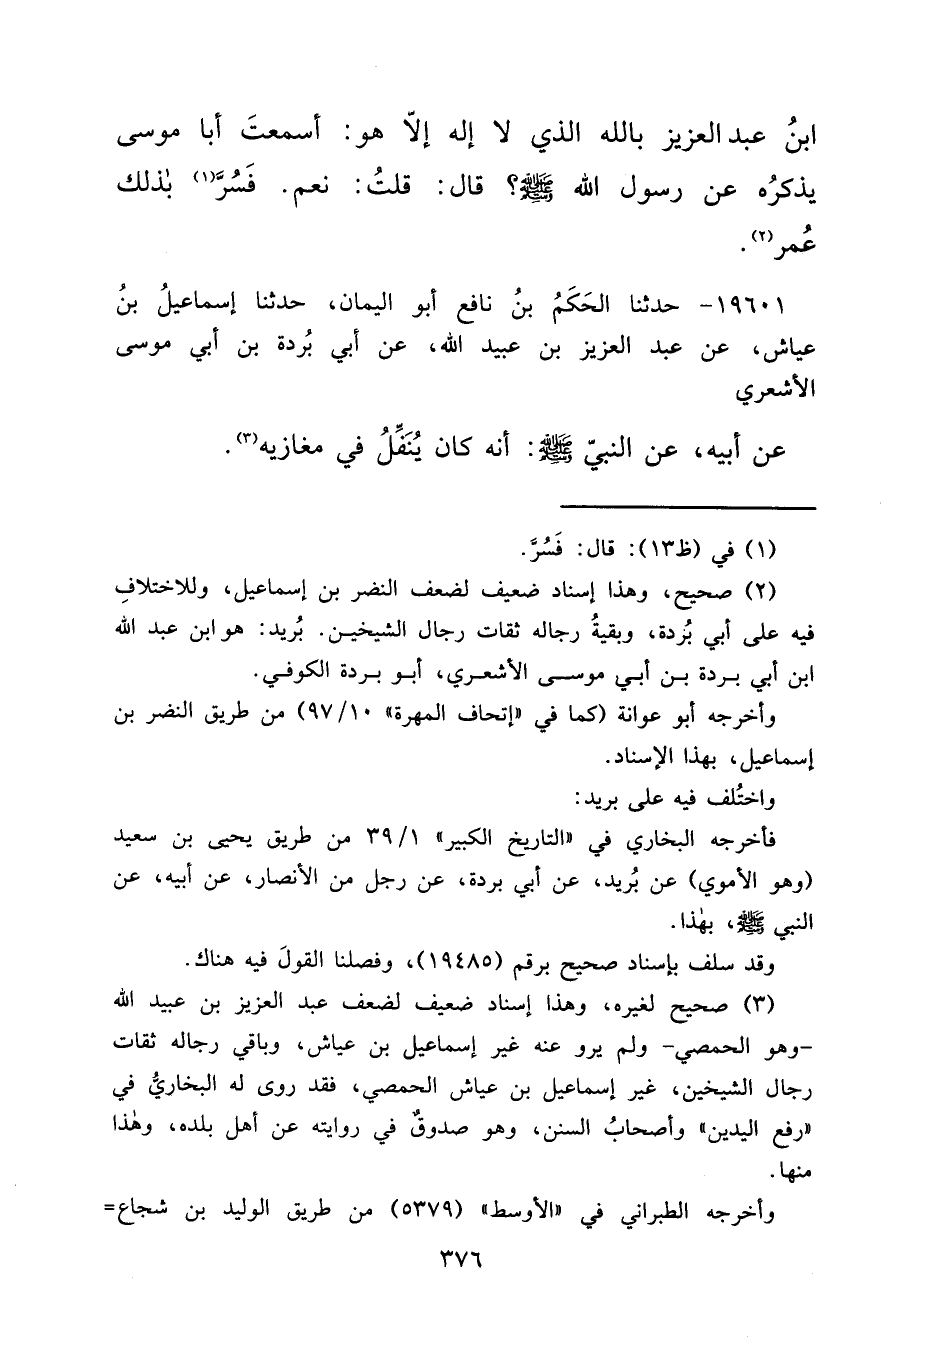 ابنُ عبد العزيز بالله الذي لا إله إلّا هو: أسمعتَ أبا موسى
يذكرُه عن رسول الله ﷺ؟ قال: قلتُ: نعم. فَسُرَّ(١) بذٰلك
عُمر(٢).
١٩٦٠١- حدثنا الحَكَمُ بنُ نافع أبو اليمان، حدثنا إسماعيلُ بنُ
عياش، عن عبد العزيز بن عبيد الله، عن أبي بُردة بن أبي موسى
الأشعري
عن أبيه، عن النبيّ ﷺ: أنه كان يُنَفِّلُ في مغازيه(٣).
(١) في (ظ١٣): قال: فَسُرَّ.
(٢) صحيح، وهذا إسناد ضعيف لضعف النضر بن إسماعيل، وللاختلافِ
فيه على أبي بُردة، وبقيةُ رجاله ثقات رجال الشيخين. بُريد: هو ابن عبد الله
ابن أبي بردة بن أبي موسى الأشعري، أبو بردة الكوفي.
وأخرجه أبو عوانة (كما في «إتحاف المهرة» ٩٧/١٠) من طريق النضر بن
إسماعيل، بهذا الإسناد.
واختُلف فيه على بريد:
فأخرجه البخاري في «التاريخ الكبير» ٣٩/١ من طريق يحيى بن سعيد
(وهو الأموي) عن بُريد، عن أبي بردة، عن رجل من الأنصار، عن أبيه، عن
النبي ﷺ، بهٰذا.
وقد سلف بإسناد صحيح برقم (١٩٤٨٥)، وفصلنا القولَ فيه هناك.
(٣) صحيح لغيره، وهذا إسناد ضعيف لضعف عبد العزيز بن عبيد الله
-وهو الحمصي- ولم يرو عنه غير إسماعيل بن عياش، وباقي رجاله ثقات
رجال الشيخين، غير إسماعيل بن عياش الحمصي، فقد روى له البخاريُّ في
«رفع اليدين» وأصحابُ السنن، وهو صدوقٌ في روايته عن أهل بلده، وهٰذا
منها.
وأخرجه الطبراني في «الأوسط» (٥٣٧٩) من طريق الوليد بن شجاع=
٣٧٦